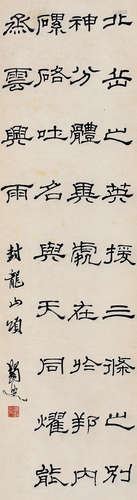 北岳之英援三條之別
神分體異處在於邦內
磥硌吐名與天同耀能
烝雲興雨
封龍山頌